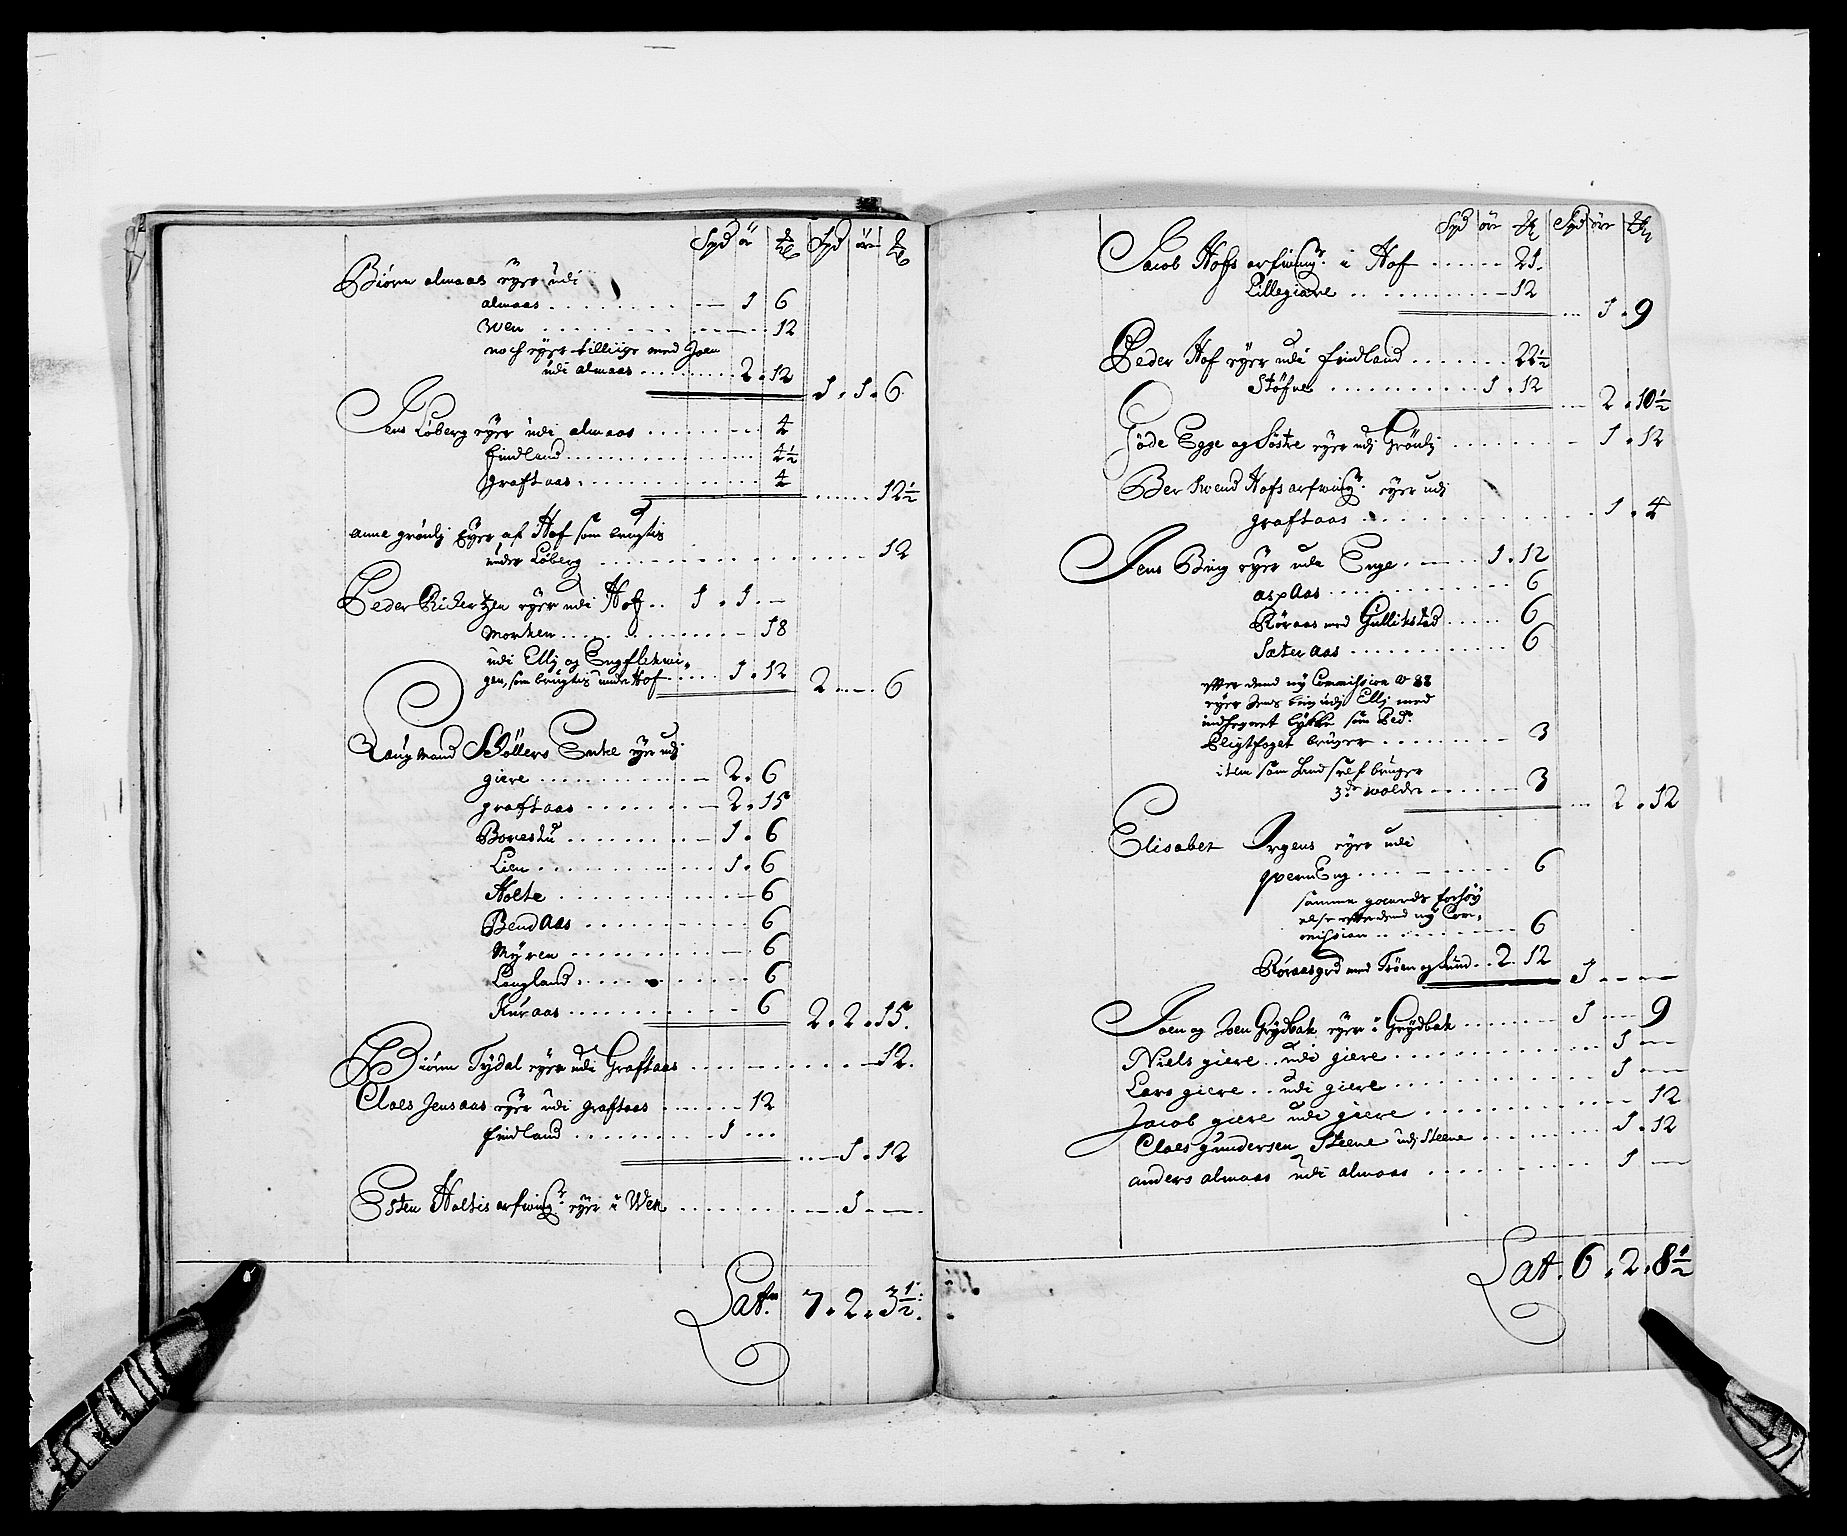 Spd ör Mk Spd öre Mk
Biörn almaas eyer udi
almaas 1 6
Wen 12
noch eyer tilliige med Joen
udi almaas 2 . 12
1 . 1 . 6
Jens Löberg eyer udi almaas 4
findland 4½
graftaas 4
12½
anne grönlj Eyer af Hof som brugtis
under Löberg 12
Peder Richertzen eyer udi Hof 1 . 1 . —
Morken 18
udi Ellj og Engslet wi-
gen, som brugtis under Hof 1 . 12
2 — 6
Laugmand Schöllers Enke eyer udj
giere 2 . 6
graftaas 2 . 15
Borestu 1 . 6
Lien 1 . 6
Holte 6
BendAas 6
Myren 6
Langland 6
Kuraas 6
2 . 2 . 15
Biörn Tydal eyer udi Graftaas 12
Claes Jensaas eyer udi graftaas 12
findland 1
1 . 12
Esten Holtis arfwing eyer i Wen 1 —
Lat 7 . 2 . 3½
Spd öre Mk Spd öre Mk
Jacob Hofs arfwing i Hof 21
Lillegiære 12
1 . 9
Peder Hof eyer udi findland 22½
Stöfne 1 . 12
2 . 10½
Göde Egge og Söstre eyer udj Grönlj 1 . 12
Ber Swend Hofs arfwing eyer udj
graftaas 1 . 4
Jens Bing eyer udi Enge 1 . 12
aspAas 6
Röraas med Gullikstad 6
Sæteraas 6
efter dend ny Commission @ 88
eyer Jens bing udj Ellj med
indhegnet lykke som Ped:
Pligtfoget bruger 3
item som hand self bruger
3de wolder 3
2 . 12
Elisabet Irgens eyer udi
qvernEng 6
samme gaards forhöy
else efter dend ny Com-
mission 6
Röraasgrd med Tröen og Lund 2 12
1 — —
Joen og Joen Grydbak eyer i Grydbak 1 — 9
Niels giere udi giere 1 —
Lars giere udi giere 1 —
Jacob giere udi giere 12
Claes gundersen Steene udj Steene 1 . 12
anders almaas udi almaas 1 —
Lat. 6 . 2 . 8½